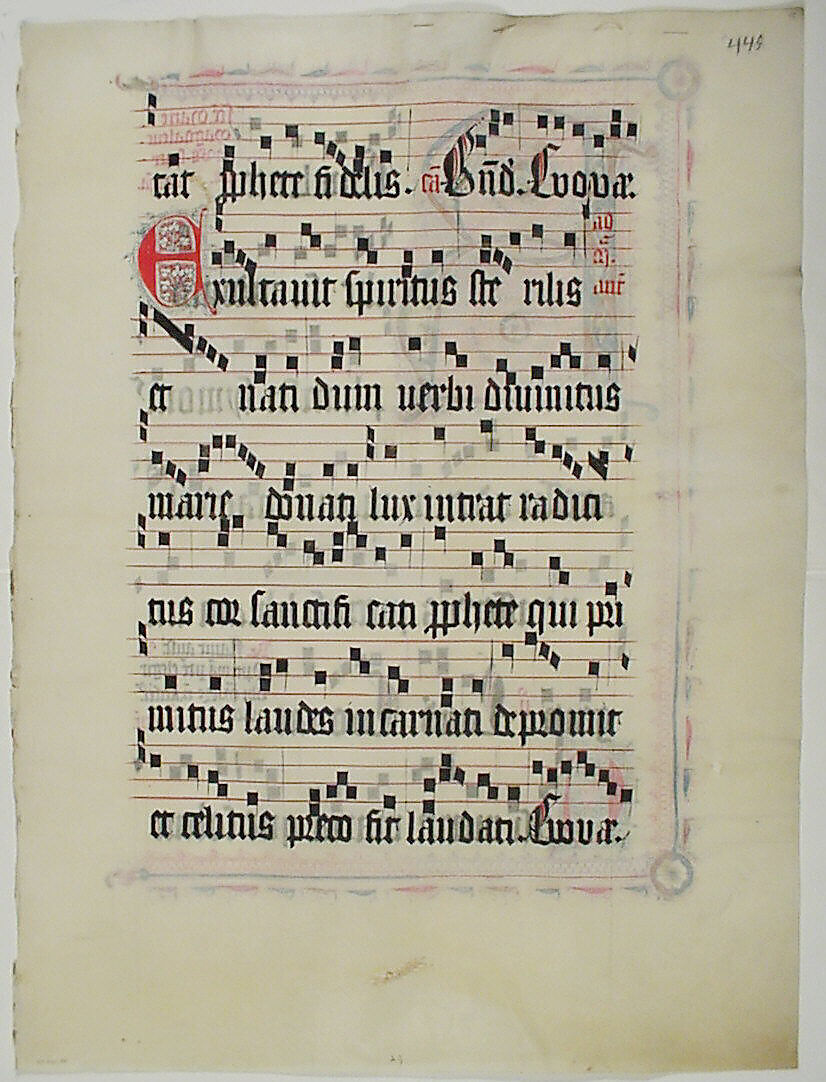 449
tat pphete fidelis. cã Bñd. Evovæ.
Exultauit spiritus ste rilis
ad
aut̃
et nati dum uerbi diuinitus
marie donati lux intrat radici
tus cor sanctifi cati pphete qui pri
mitus laudes incarnati depromit
et celitus preco fit laudati. Evovæ.